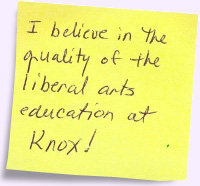 I believe in the
quality of the
liberal arts
education at
Knox!